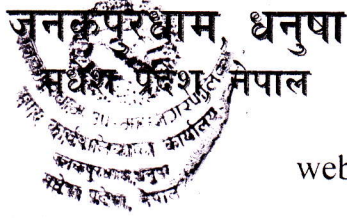 जनकपुरधाम, धनुषा
मधेश प्रदेश, नेपाल
कार्यालय
जनकपुरधाम, धनुषा
मधेश प्रदेश, नेपाल
web